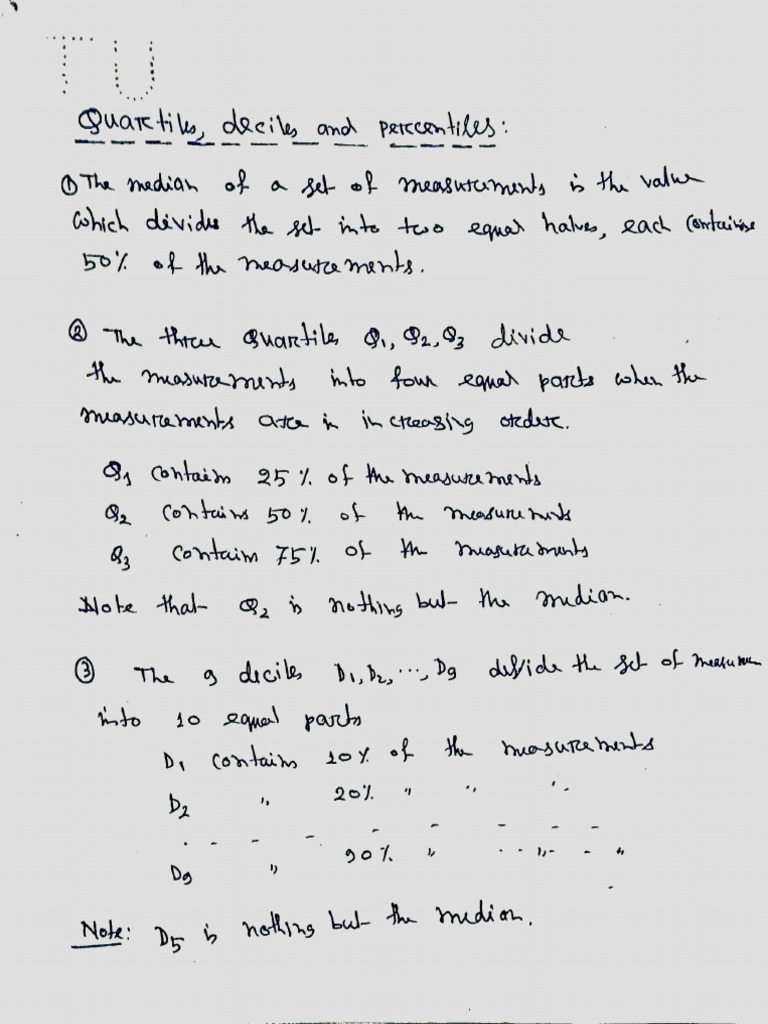 TU
Quartiles, deciles and percentiles:
① The median of a set of measurements is the value
which divides the set into two equal halves, each containing
50% of the measurements.
② The three quartiles Q1, Q2, Q3 divide
the measurements into four equal parts when the
measurements are in increasing order.
Q1 contains 25% of the measurements
Q2 contains 50% of the measurements
Q3 contains 75% of the measurements
Note that Q2 is nothing but the median.
③ The 9 deciles D1, D2, ..., D9 divide the set of measurem
into 10 equal parts
D1 contains 10% of the measurements
D2 " 20% " " "
. - - - - - - - -
D9 " 90% " " "
Note: D5 is nothing but the median.